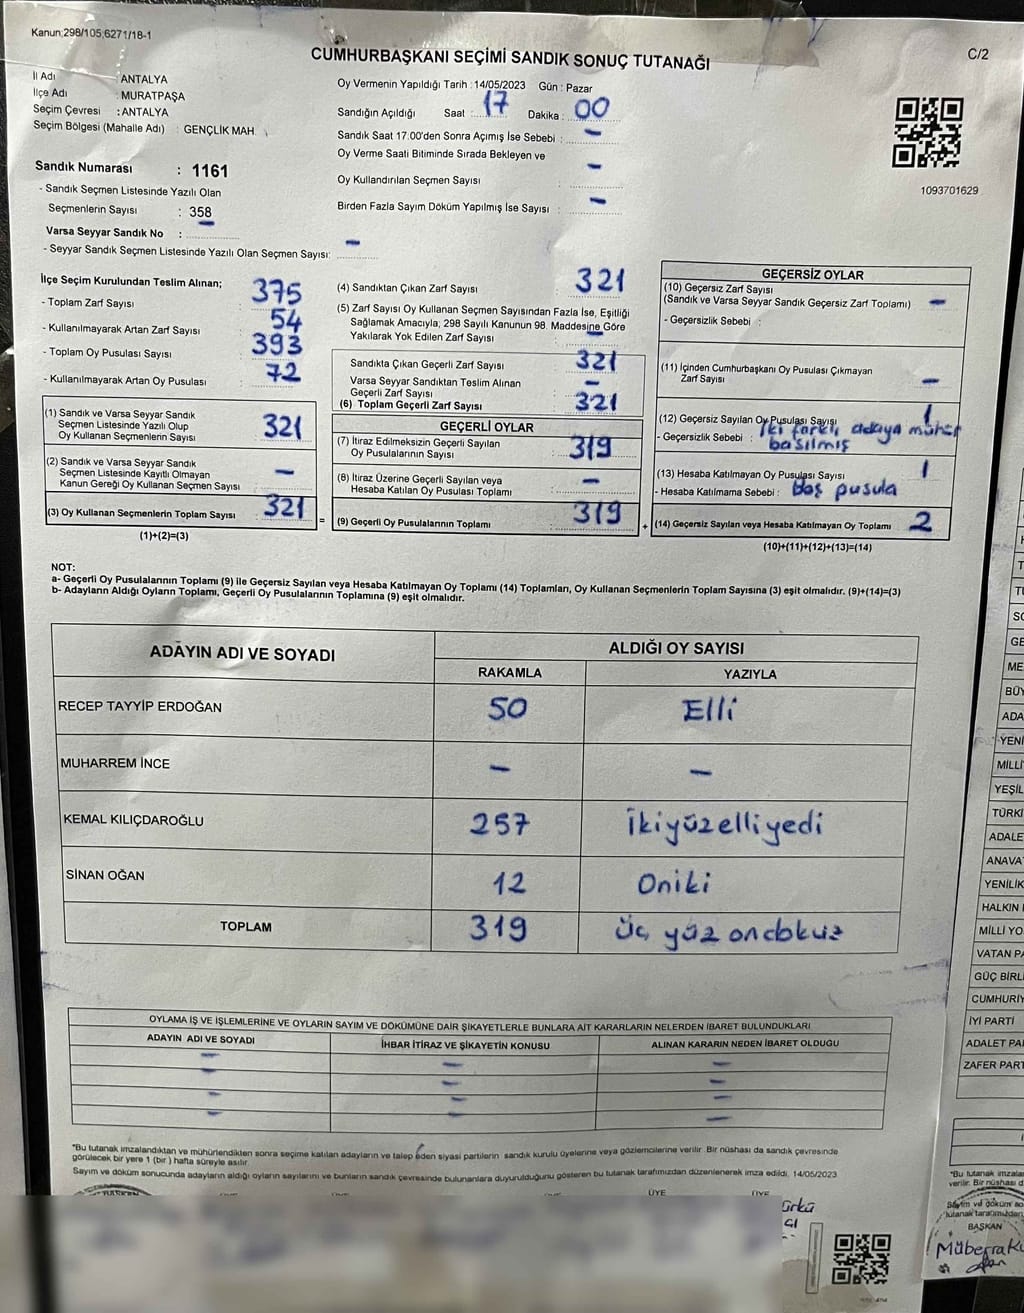 Kanun;298/105;6271/18-1
C/2
CUMHURBAŞKANI SEÇİMİ SANDIK SONUÇ TUTANAĞI
İl Adı : ANTALYA
İlçe Adı : MURATPAŞA
Seçim Çevresi : ANTALYA
Seçim Bölgesi (Mahalle Adı) : GENÇLİK MAH.
Oy Vermenin Yapıldığı Tarih : 14/05/2023 Gün : Pazar
Sandığın Açıldığı Saat : 17 Dakika : 00
Sandık Saat 17.00'den Sonra Açımış İse Sebebi : -
Oy Verme Saati Bitiminde Sırada Bekleyen ve
Oy Kullandırılan Seçmen Sayısı -
Birden Fazla Sayım Döküm Yapılmış İse Sayısı : -
1093701629
Sandık Numarası : 1161
- Sandık Seçmen Listesinde Yazılı Olan
Seçmenlerin Sayısı : 358
Varsa Seyyar Sandık No : -
- Seyyar Sandık Seçmen Listesinde Yazılı Olan Seçmen Sayısı: -
İlçe Seçim Kurulundan Teslim Alınan;
- Toplam Zarf Sayısı 375
- Kullanılmayarak Artan Zarf Sayısı : 54
- Toplam Oy Pusulası Sayısı 393
- Kullanılmayarak Artan Oy Pusulası : 72
(1) Sandık ve Varsa Seyyar Sandık
Seçmen Listesinde Yazılı Olup
Oy Kullanan Seçmenlerin Sayısı 321
(2) Sandık ve Varsa Seyyar Sandık
Seçmen Listesinde Kayıtlı Olmayan
Kanun Gereği Oy Kullanan Seçmen Sayısı -
(3) Oy Kullanan Seçmenlerin Toplam Sayısı 321
(1)+(2)=(3)
=
(4) Sandıktan Çıkan Zarf Sayısı 321
(5) Zarf Sayısı Oy Kullanan Seçmen Sayısından Fazla İse, Eşitliği
Sağlamak Amacıyla; 298 Sayılı Kanunun 98. Maddesine Göre
Yakılarak Yok Edilen Zarf Sayısı -
Sandıkta Çıkan Geçerli Zarf Sayısı 321
Varsa Seyyar Sandıktan Teslim Alınan
Geçerli Zarf Sayısı -
(6) Toplam Geçerli Zarf Sayısı 321
GEÇERLİ OYLAR
(7) İtiraz Edilmeksizin Geçerli Sayılan
Oy Pusulalarının Sayısı 319
(8) İtiraz Üzerine Geçerli Sayılan veya
Hesaba Katılan Oy Pusulası Toplamı -
(9) Geçerli Oy Pusulalarının Toplamı 319
+
GEÇERSİZ OYLAR
(10) Geçersiz Zarf Sayısı
(Sandık ve Varsa Seyyar Sandık Geçersiz Zarf Toplamı) -
- Geçersizlik Sebebi :
(11) İçinden Cumhurbaşkanı Oy Pusulası Çıkmayan
Zarf Sayısı -
(12) Geçersiz Sayılan Oy Pusulası Sayısı 1
- Geçersizlik Sebebi : İki farklı adaya mühür
basılmış
(13) Hesaba Katılmayan Oy Pusulası Sayısı 1
- Hesaba Katılmama Sebebi : Boş pusula
(14) Geçersiz Sayılan veya Hesaba Katılmayan Oy Toplamı 2
(10)+(11)+(12)+(13)=(14)
NOT:
a- Geçerli Oy Pusulalarının Toplamı (9) ile Geçersiz Sayılan veya Hesaba Katılmayan Oy Toplamı (14) Toplamları, Oy Kullanan Seçmenlerin Toplam Sayısına (3) eşit olmalıdır. (9)+(14)=(3)
b- Adayların Aldığı Oyların Toplamı, Geçerli Oy Pusulalarının Toplamına (9) eşit olmalıdır.
ADAYIN ADI VE SOYADI ALDIĞI OY SAYISI
RAKAMLA YAZIYLA
RECEP TAYYİP ERDOĞAN 50 Elli
MUHARREM İNCE - -
KEMAL KILIÇDAROĞLU 257 İkiyüzelliyedi
SİNAN OĞAN 12 Oniki
TOPLAM 319 Üç yüz ondokuz
OYLAMA İŞ VE İŞLEMLERİNE VE OYLARIN SAYIM VE DÖKÜMÜNE DAİR ŞİKAYETLERLE BUNLARA AİT KARARLARIN NELERDEN İBARET BULUNDUKLARI
ADAYIN ADI VE SOYADI İHBAR İTİRAZ VE ŞİKAYETİN KONUSU ALINAN KARARIN NEDEN İBARET OLDUĞU
- - -
- - -
- - -
- - -
*Bu tutanak imzalandıktan ve mühürlendikten sonra seçime katılan adayların ve talep eden siyasi partilerin sandık kurulu üyelerine veya gözlemcilerine verilir. Bir nüshası da sandık çevresinde
görülecek bir yere 1 (bir) hafta süreyle asılır.
Sayım ve döküm sonucunda adayların aldığı oyların sayılarını ve bunların sandık çevresinde bulunanlara duyurulduğunu gösteren bu tutanak tarafımızdan düzenlenerek imza edildi. 14/05/2023
BAŞKAN
ÜYE ÜYE
GE
ME
BÜY
ADA
YENİ
MİLLİ
YEŞİL
TÜRKİ
ADALE
ANAVA
YENİLİK
HALKIN
MİLLİ YO
VATAN PA
GÜÇ BİRL
CUMHURİY
İYİ PARTİ
ADALET PA
ZAFER PART
*Bu tutanak imzala
verilir. Bir nüshası d
Sayım ve döküm so
tutanak tarafımızdan
BAŞKAN
Müberra K